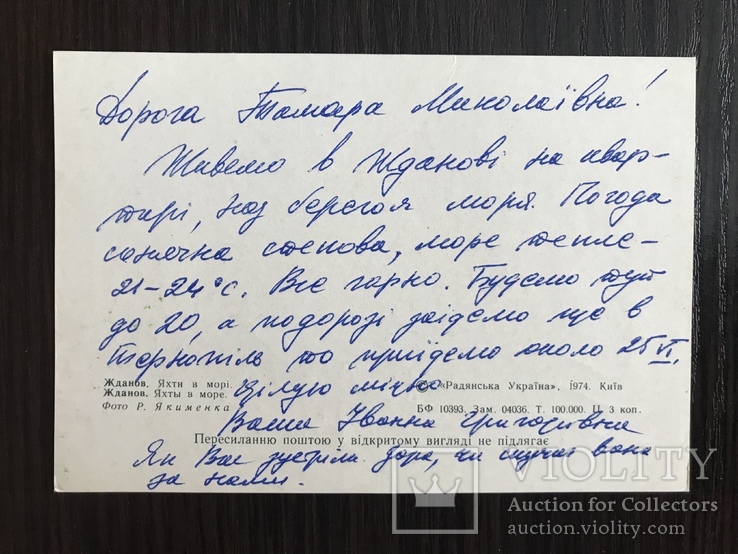 Дорога Тамара Миколаївна!
Живемо в Жданові на квар-
тирі, над берегом моря. Погода
сонячна степова, море тепле-
21-24°С. Все гарно. Будемо тут
до 20, а по дорозі заїдемо ще в
Тернопіль то приїдемо около 25 VI.
Жданов. Яхти в морі.
Жданов. Яхты в море.
Фото Р. Якименка
© «Радянська Україна», 1974. Київ
БФ 10393. Зам. 04036. Т. 100.000. Ц. 3 коп.
Цілую міцно
Ваша Іванна Григорівна
Пересиланню поштою у відкритому вигляді не підлягає
Як Вас зустріла Дора, чи скучає вона
за нами.
VIOLITY
Auction for Collectors
auction.violity.com